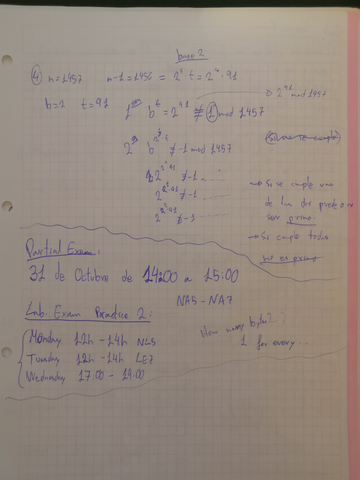 base 2
④ n=1457 n-1=1456 = 2^s · t = 2^4 · 91
b=2 t=91 1º b^t = 2^91 ≢ 1 mod 1457 → 2^91 mod 1457
2º b^(2^r·t) ≢ -1 mod 1457
2^(2·91) ≢ -1
2^(2^2·91) ≢ -1
2^(2^3·91) ≢ -1
→ Si se cumple una de las dos puede ser primo.
→ Si cumple todas
Partial Exam:
31 de Octubre de 14:00 a 15:00
NA5 - NA7
Lab. Exam Practice 2:
Monday 12h - 14h NL5
Tuesday 12h - 14h LE7
Wednesday 17:00 - 19:00
How many bytes?
1 for every...